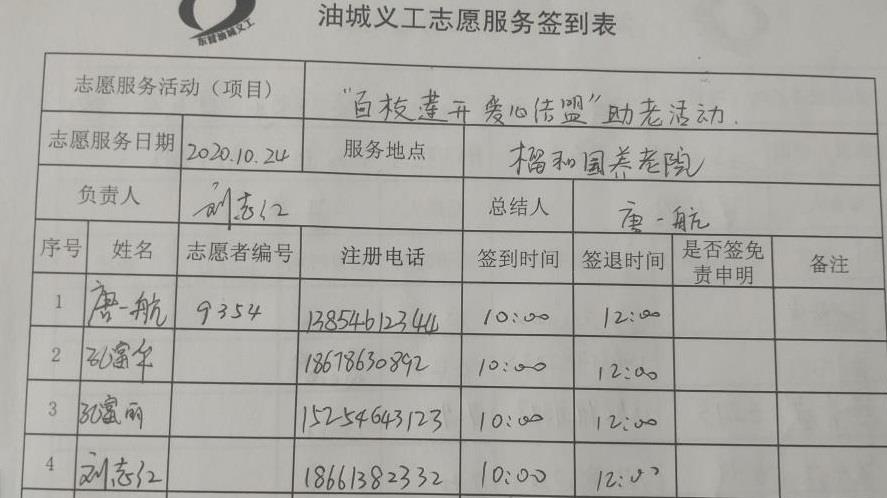 油城义工志愿服务签到表
东营油城义工
志愿服务活动（项目） “百枝莲开 爱心结盟”助老活动.
志愿服务日期 2020.10.24 服务地点 榴和园养老院
负责人 刘志红 总结人 唐一航
序号 姓名 志愿者编号 注册电话 签到时间 签退时间 是否签免责申明 备注
1 唐一航 9354 13854612344 10:00 12:00
2 孔富华 18678630892 10:00 12:00
3 孔富丽 15254643123 10:00 12:00
4 刘志红 18661382332 10:00 12:00